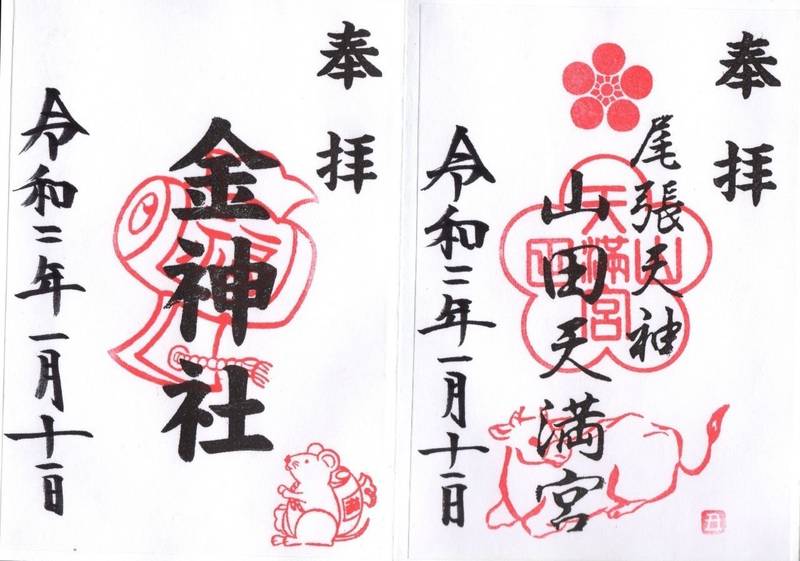 奉拝
尾張天神
山田天満宮
令和二年一月十一日
奉拝
金神社
令和二年一月十一日
天満宮
山田